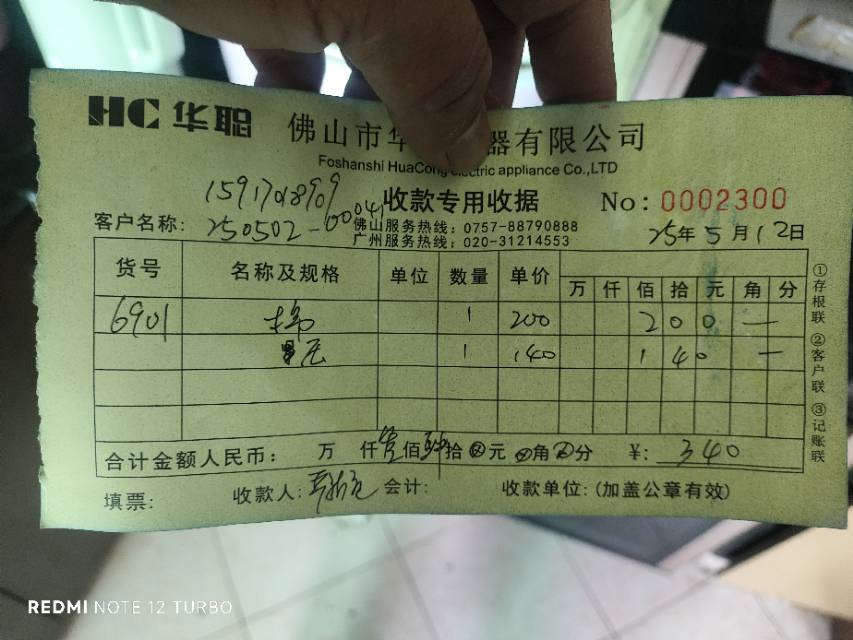 HC 华聪 佛山市华 器有限公司
Foshanshi HuaCong electric appliance Co.,LTD
15917018909 收款专用收据 No: 0002300
客户名称: 250502-00041 佛山服务热线: 0757-88790888
广州服务热线: 020-31214553 25年5月12日
货号 名称及规格 单位 数量 单价 万 仟 佰 拾 元 角 分
6901 1 200 2 0 0 —
1 140 1 4 0 —
合计金额人民币: 万 仟 佰 拾 元 角 分 ¥: 340
填票: 收款人: 会计: 收款单位: (加盖公章有效)
①存根联 ②客户联 ③记账联
REDMI NOTE 12 TURBO